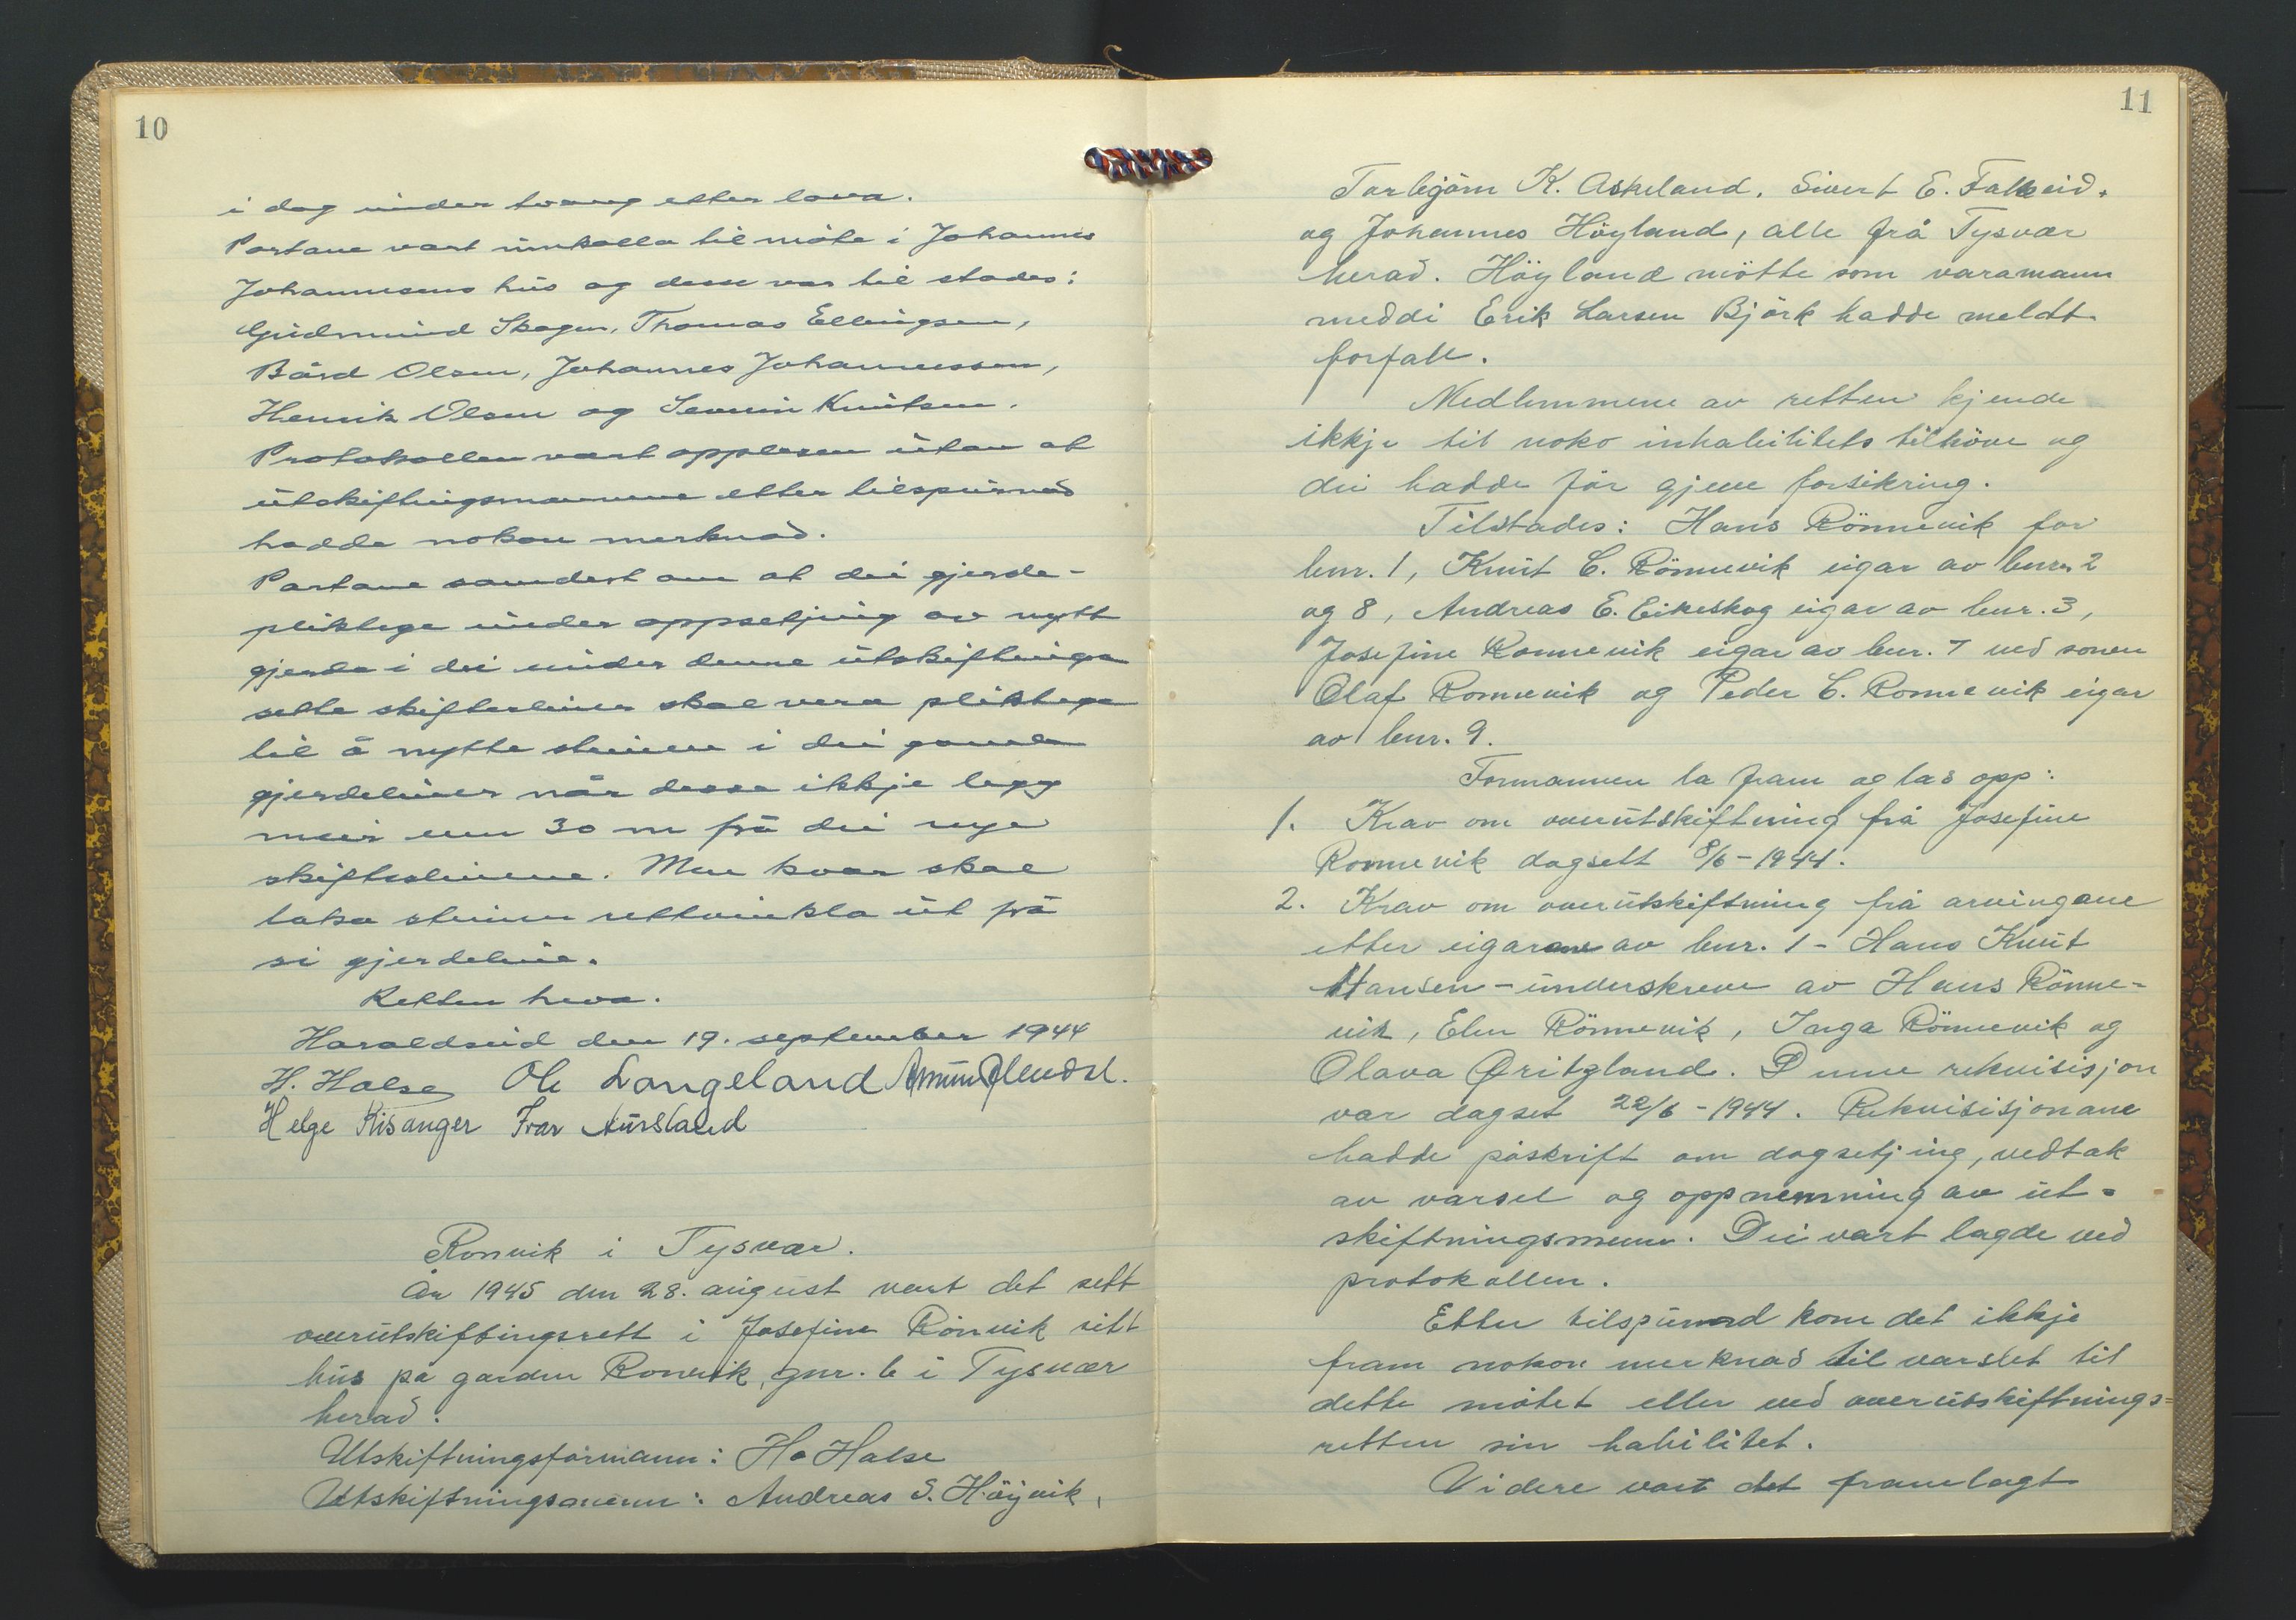 10
i dag under tvang etter lova.
Partane vart innkalla til møte i Johannes
Johannesens hus og desse var til stades:
Gudmund Skogen, Thomas Ellingsen,
Bård Olsen, Johannes Johannessen,
Henrik Olsen og Severin Knutsen.
Protokollen vart opplesen utan at
utskiftingsmennene etter tilspurnad
hadde nokon merknad.
Partane samdest om at dei gjerde-
pliktege under oppsetjing av nytt
gjerde i dei under denne utskiftinga
sette skifteliner skal vera pliktege
til å nytte steinen i dei gamle
gjerdeliner når desse ikkje ligg
meir enn 30 m frå dei nye
skifteslinene. Men kvar skal
taka steinen rettvinkla ut frå
si gjerdeline.
Retten heva.
Haraldseid den 19. september 1944
H. Halse Ole Langeland
Helge Risanger Ivar Aursland
Ronvik i Tysvær.
År 1945 den 28. august vart det sett
overutskiftingsrett i Josefine Rönvik sitt
hus på garden Ronvik, gnr. 6 i Tysvær
herad.
Utskiftningsformann: H. Halse
Utskiftningsmenn: Andreas S. Höyvik,
11
Torbjörn K. Askeland. Sivert E. Falkeid.
og Johannes Höyland, alle frå Tysvær
herad. Höyland mötte som varamann
meddi Erik Larsen Björk hadde meldt
forfall.
Medlemmene av retten kjende
ikkje til noko inhabilitets tilhöve og
dei hadde för gjeve forsikring.
Tilstades: Hans Rönnevik for
bnr. 1, Knut C. Rönnevik eigar av bnr. 2
og 8, Andreas E. Eikeskog eigar av bnr. 3,
Josefine Ronnevik eigar av bnr. 7 ved sonen
Olaf Ronnevik og Peder C. Ronnevik eigar
av bnr. 9.
Formannen la fram og las opp:
1. Krav om overutskiftning frå Josefine
Ronnevik dagsett 8/6-1944.
2. Krav om overutskiftning frå arvingane
etter eigarane av bnr. 1 - Hans Knut
Hansen - underskreve av Hans Rönne-
vik, Elen Rönnevik, Inga Rönnevik og
Olava Øritzland. Denne rekvisisjon
var dagset 22/6-1944. Rekvisisjonane
hadde påskrift om dagsetjing, vedtak
av varsel og oppnemning av ut-
skiftningsmenn. Dei vart lagde ved
protokollen.
Etter tilspurnad kom det ikkje
fram nokon merknad til varslet til
dette mötet eller ved overutskiftnings-
retten sin habilitet.
Videre vart det framlagt